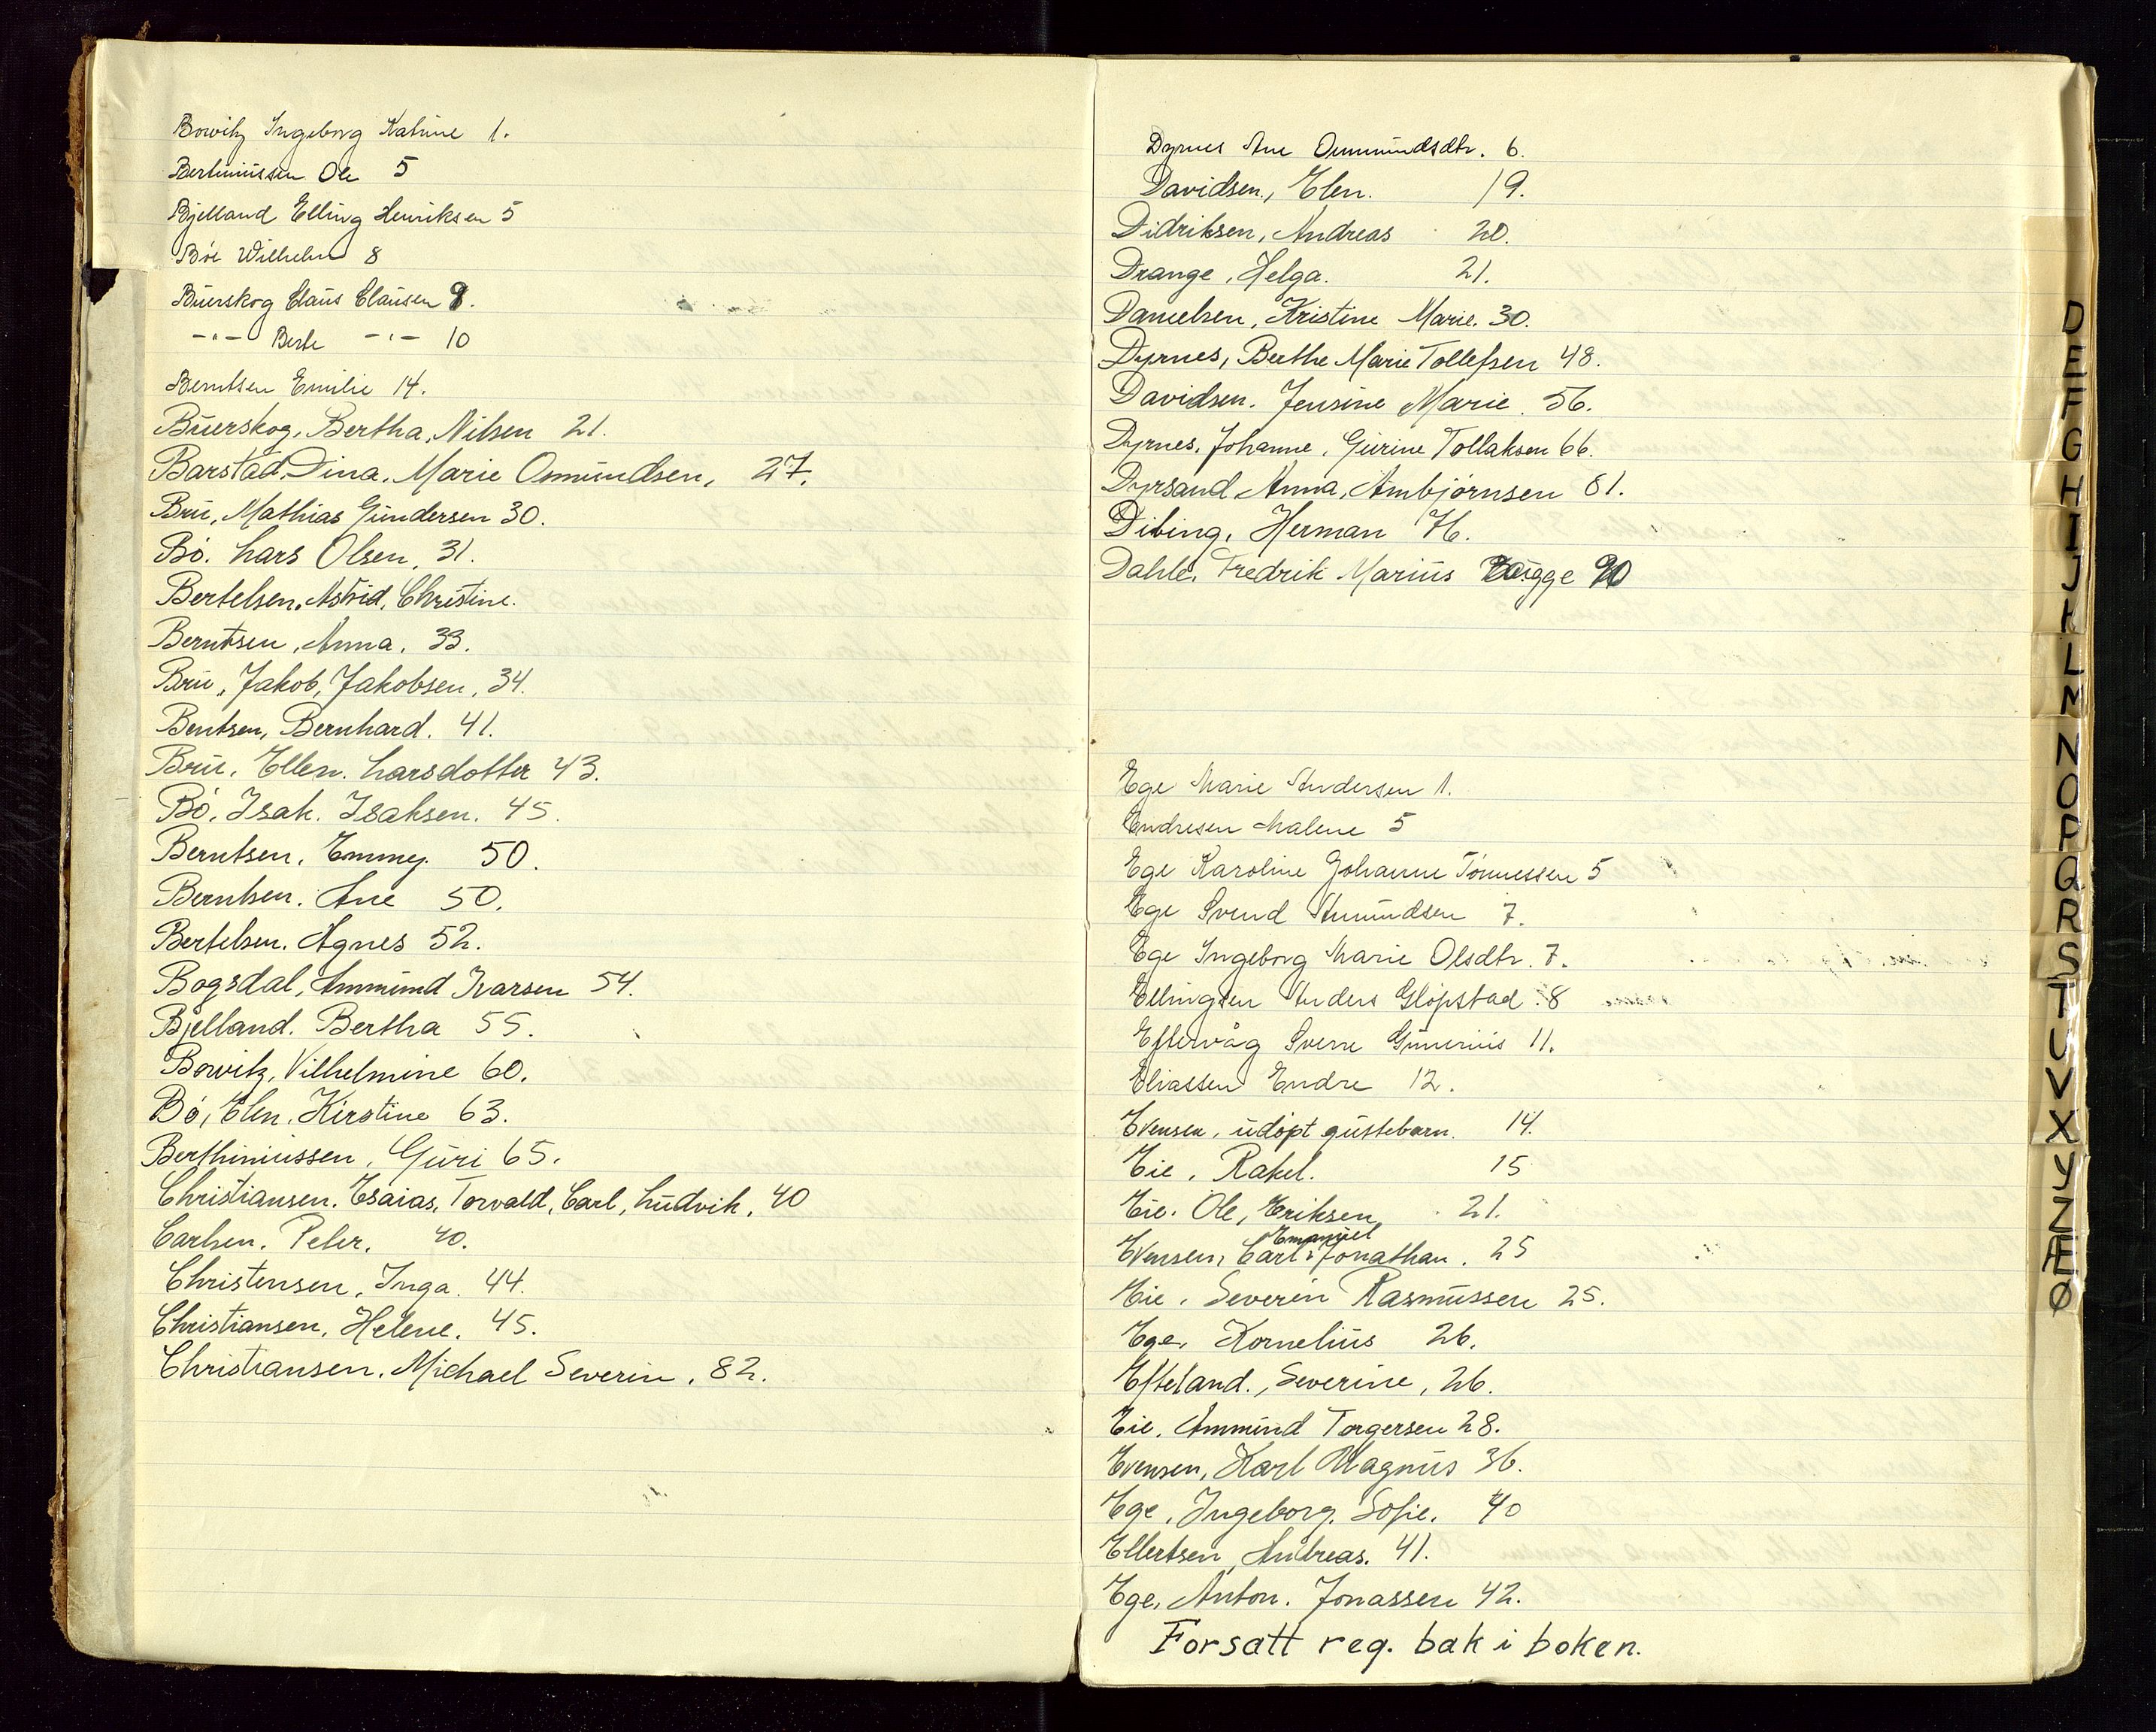 Bowitz Ingeborg Katrine 1.
Bertiniussen Ole 5
Bjelland Elling Henriksen 5
Bøe Wilhelm 8
Buerskog Claus Clausen 9.
-"- Berte -"- 10
Berntsen Emilie 14.
Buerskog, Bertha, Nilsen 21.
Barstad, Dina, Marie Osmundsen, 27.
Bru, Mathias Gundersen 30.
Bø. Lars Olsen, 31.
Bertelsen, Astrid, Christine.
Berntsen, Anna, 33.
Bru, Jakob, Jakobsen, 34.
Bentsen, Bernhard. 41.
Bru, Ellen. Larsdotter 43.
Bø, Isak. Isaksen. 45.
Berntsen, Emmy. 50.
Berntsen. Ane 50.
Bertelsen. Agnes 52.
Bogsdal, Ammund Ivarsen 54.
Bjelland. Bertha 55.
Bowitz, Vilhelmine 60.
Bø, Elen, Kirstine 63.
Berthiniussen, Guri 65.
Christiansen, Esaias, Torvald, Carl, Ludvik, 40
Carlsen. Peter. 40.
Christensen, Inga. 44.
Christiansen, Helene. 45.
Christiansen. Michael Severin, 82.
Dyrnes Ane Ommundsdtr. 6.
Davidsen, Elen. 19.
Didriksen, Andreas 20.
Drange, Helga. 21.
Danielsen, Kristine Marie. 30.
Dyrnes, Berthe Marie Tollefsen 48.
Davidsen. Jensine Marie. 56.
Dyrnes, Johanne, Gurine Tollaksen 66.
Dyrsand Anna, Ambjørnsen 61.
Dibing, Herman 76.
Dahle, Fredrik Marius Bugge 90
Ege Marie Andersen 1.
Endresen Malene 5
Ege Karoline Johanne Tønnessen 5
Ege Svend Amundsen 7.
Ege Ingeborg Marie Olsdtr. 7.
Ellingsen Anders Gløpstad. 8
Eftervåg Sverre Gunerius 11.
Eliassen Endre 12.
Evensen, udøpt guttebarn. 14.
Eie, Rakel. 15
Eie. Ole, Eriksen, 21.
Emanuel
Evensen, Carl Jonathan. 25
Eie, Severin Rasmussen 25.
Ege, Kornelius 26.
Efteland., Severine, 26.
Eie, Ammund Torgersen 28.
Evensen, Karl Magnus 36.
Ege, Ingeborg. Sofie. 40
Ellertsen, Andreas. 41.
Ege, Anton. Jonassen 42.
Forsatt reg. bak i boken.
D
E
F
G
H
I
J
K
L
M
N
O
P
Q
R
S
T
U
V
X
Y
Z
Æ
Ø